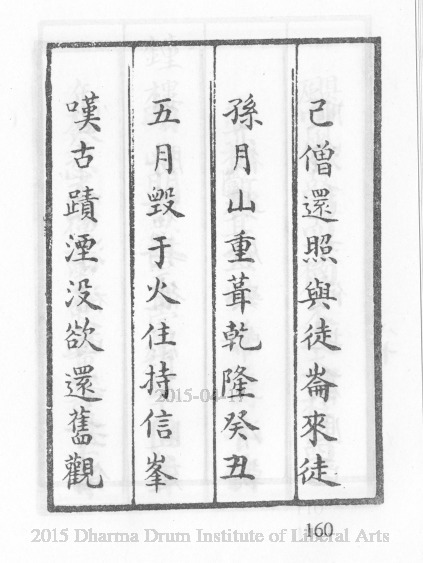 己僧還照與徒崙來徒
孫月山重葺乾隆癸丑
五月毀于火住持信峯
嘆古蹟湮没欲還舊觀
160
2015 Dharma Drum Institute of Liberal Arts